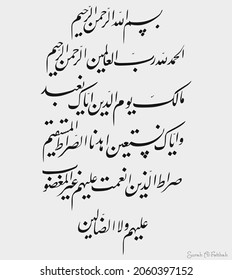 بسم الله الرحمن الرحيم
الحمد لله رب العالمين الرحمن الرحيم
مالك يوم الدين اياك نعبد
واياك نستعين اهدنا الصراط المستقيم
صراط الذين انعمت عليهم غير المغضوب
عليهم ولا الضالين
Surah Al-Fatihah
shutterstock.com · 2060397152